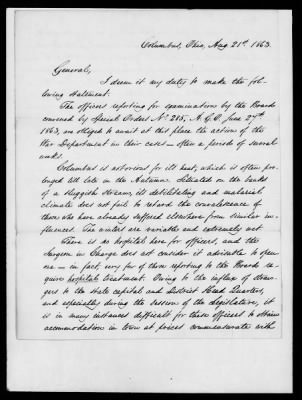 Columbus, Ohio, Aug 21st 1863.
General,
I deem it my duty to make the fol-
lowing statement.
The officers reporting for examination by the Boards
convened by Special Orders No 285, A.G.O. June 27th
1863, are obliged to await at this place the action of the
War Department in their cases — often a period of several
weeks.
Columbus is notorious for its heat, which is often pro-
longed till late in the Autumn. Situated on the banks
of a sluggish stream, its debilitating and malarial
climate does not fail to retard the convalescence of
those who have already suffered elsewhere from similar in-
fluences. The winters are variable and extremely wet.
There is no hospital here for officers, and the
Surgeon in Charge does not consider it advisable to open
one — in fact, very few of those reporting to the Boards re-
quire hospital treatment. Owing to the influx of stran-
gers to the State capital and District Head Quarters,
and especially during the session of the legislature, it
is in many instances difficult for these officers to obtain
accommodation in town at prices commensurate with